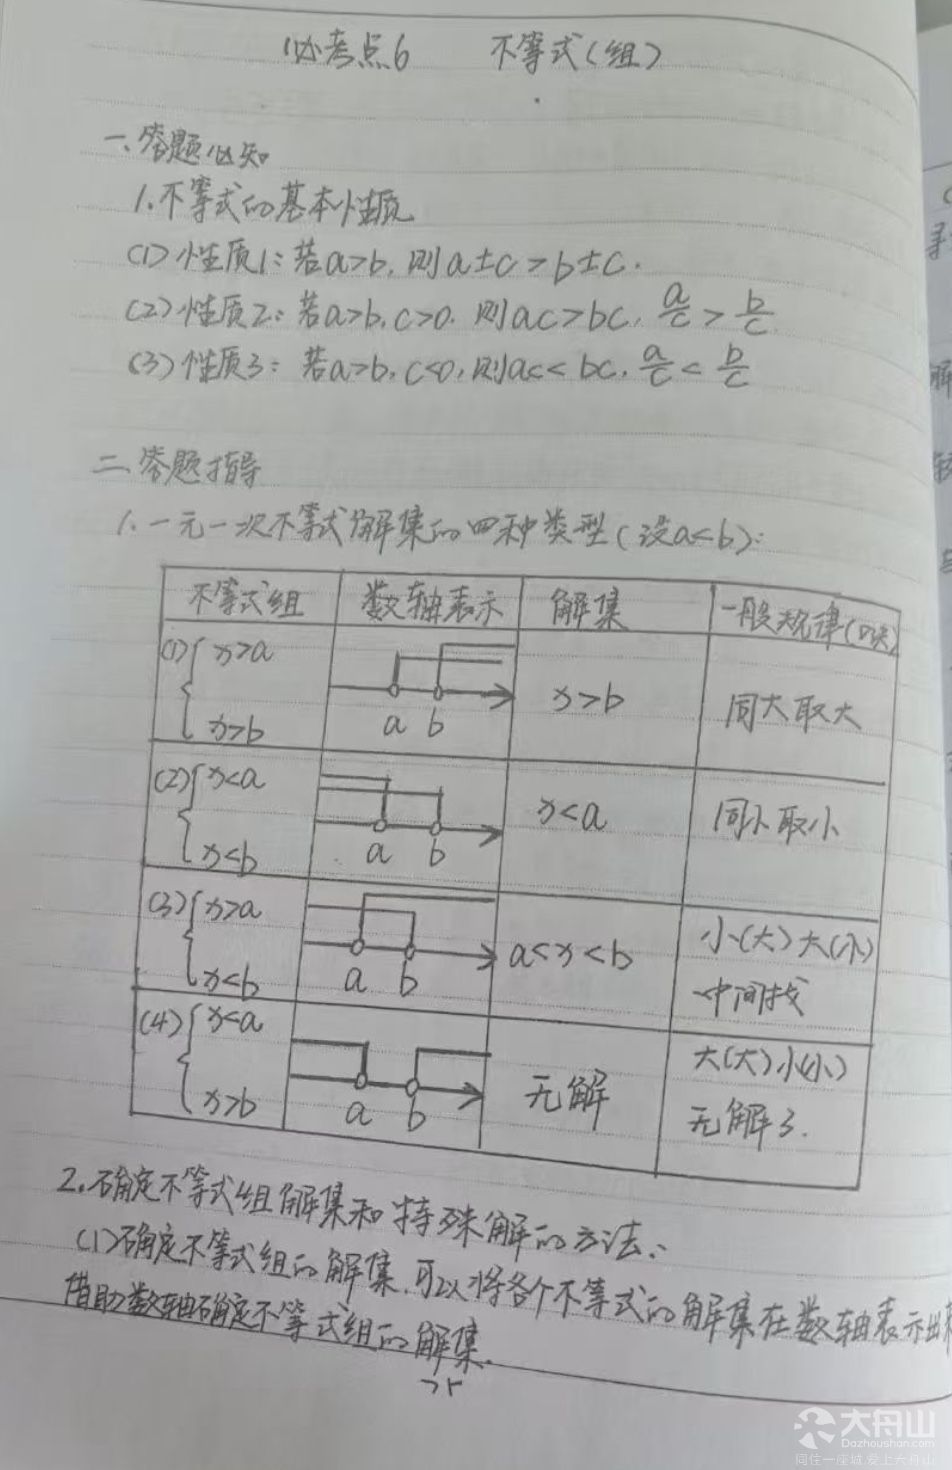 必考点6 不等式(组)
一、答题必知
1.不等式的基本性质
(1)性质1:若a>b,则a±c>b±c.
(2)性质2:若a>b,c>0.则ac>bc,a/c>b/c
(3)性质3:若a>b,c<0,则ac<bc,a/c<b/c
二、答题指导
1.一元一次不等式解集的四种类型(设a<b):
不等式组 数轴表示 解集 一般规律(口诀)
(1){x>a x>b a b x>b 同大取大
(2){x<a x<b a b x<a 同小取小
(3){x>a x<b a b a<x<b 小(大)大(小)
中间找
(4){x<a x>b a b 无解 大(大)小(小)
无解了.
2.确定不等式组解集和特殊解的方法:
(1)确定不等式组的解集,可以将各个不等式的解集在数轴表示出
借助数轴确定不等式组的解集.
大舟山
Dazhoushan.com
同住一座城 爱上大舟山